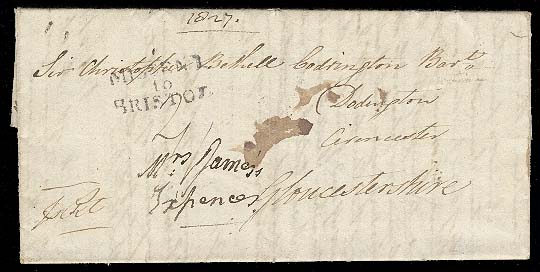 1827.
Sir Christopher Bethell Codrington Bart.
BRISTOL
Dodington
Cirencester
Mrs James's
Expences
Gloucestershire